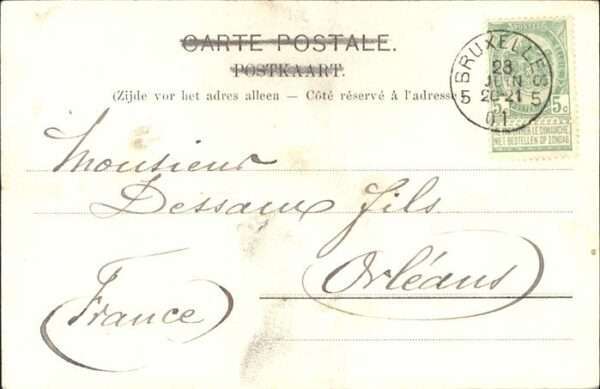 CARTE POSTALE.
POSTKAART.
(Zijde voor het adres alleen — Côté réservé à l'adresse
BRUXELLES
23
JUIN
5 20-21 5
01
5c 5c
NIET BESTELLEN OP ZONDAG
Monsieur
Dessaux fils
Orléans
France